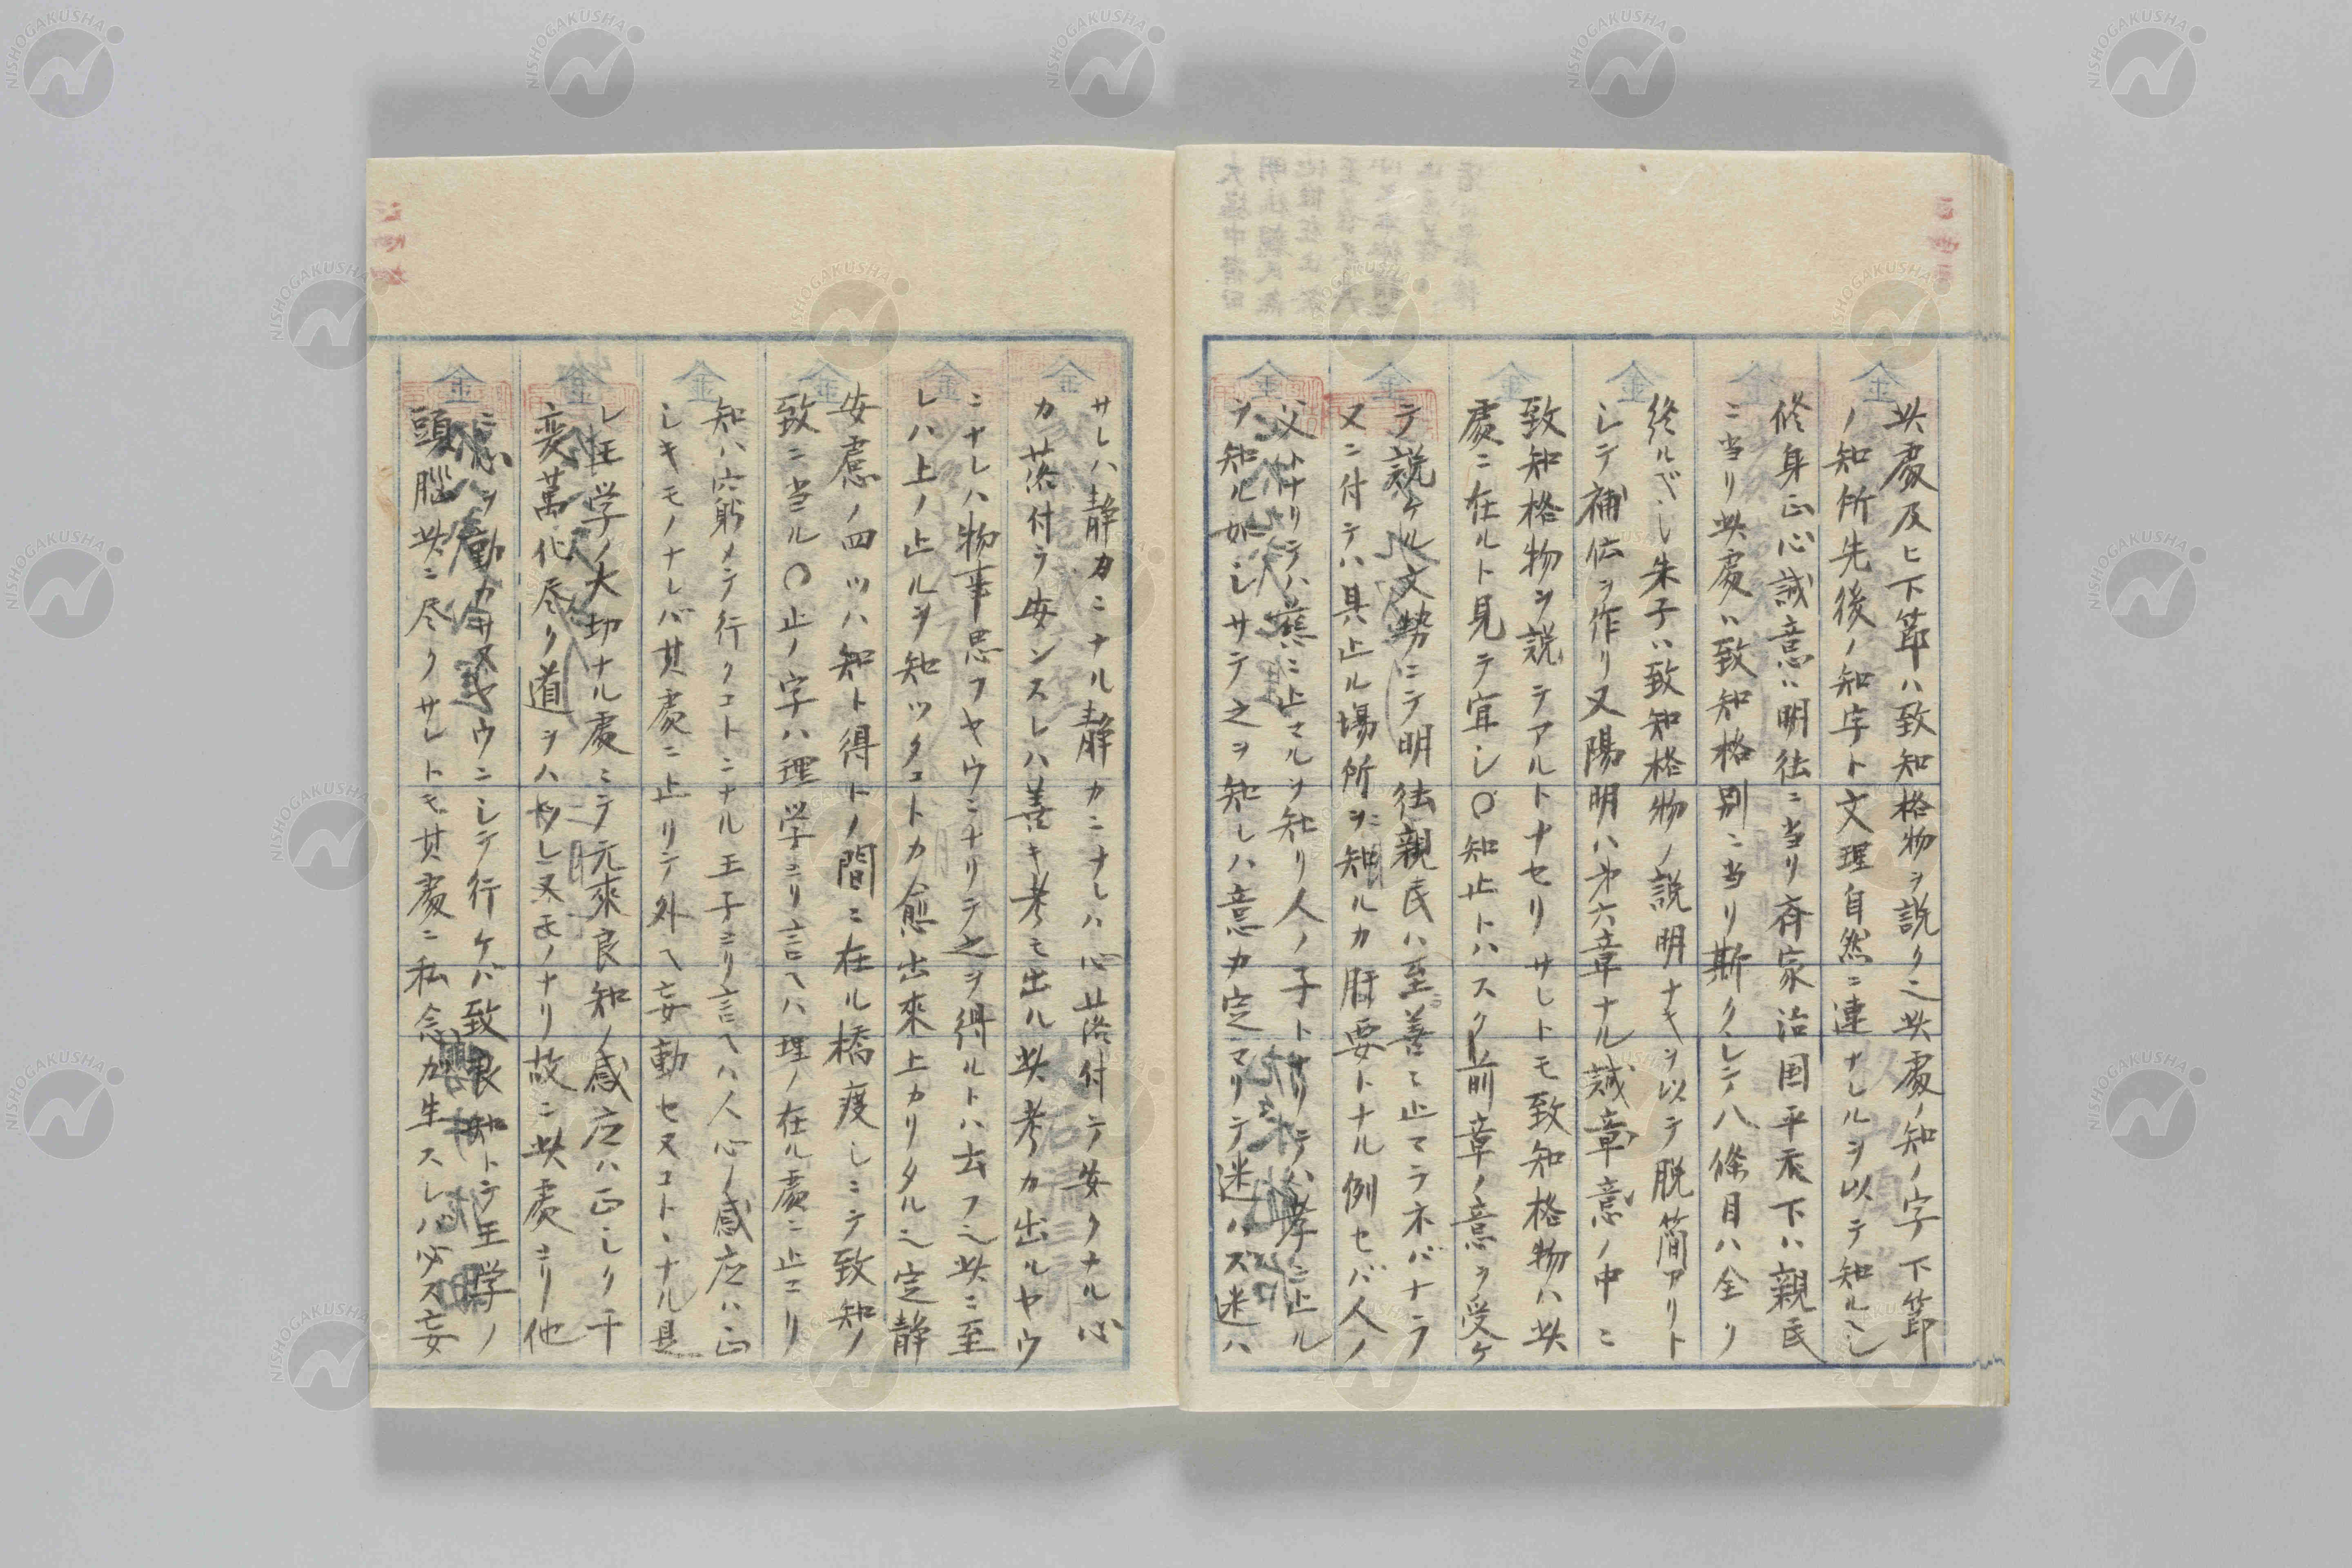 此處及ヒ下節ハ致知格物ヲ説ク二此處ノ知ノ字下節
ノ知所先後ノ知字ト文理自然ニ連ナレルヲ以テ知ルヘシ
修身正心誠意ハ明徳ニ当リ斉家治国平天下ハ親民
ニ当リ此處ハ致知格別ニ当リ斯クシテ八條目ハ全ク
終ルベシ朱子ハ致知格物ノ説明ナキヲ以テ脱簡アリト
シテ補伝ヲ作リ又陽明ハ第六章ナル誠章意ノ中ニ
致知格物ヲ説テアルトナセリサレトモ致知格物ハ此
處ニ在ルト見テ宜シ〇知止トハスク前章ノ意ヲ受ケ
テ説ケル文勢ニテ明徳親民ハ至善ニ止マラネバナラ
ヌニ付テハ其止ル場所ヲ知ルカ肝要トナル例セバ人ノ
父トナリテハ慈ニ止マルヲ知リ人ノ子トナリテハ孝ニ止ル
ヲ知ル如シサテ之ヲ知レハ意カ定マリテ迷ハズ迷ハ
サレハ静カニナル静カニナレハ心落付テ安クナル心
カ落付ラ安ンスレハ善キ考モ出ル此考カ出ルヤウ
ニナレハ物事思フヤウニナリテ之ヲ得ルトハ云フ之此ニ至
レハ上ノ止ルヲ知ツタコトカ愈出來上カリタル之定静
安慮ノ四ツハ知ト得トノ間ニ在ル橋渡シニテ致知ノ
致ニ当ル〇止ノ字ハ理学ヨリ言ヘハ理ノ在ル處ニ止ヨリ
知ハ穴窮メテ行クコトニナル王子ヨリ言ヘハ人心ノ感应ハ正
シキモノナレバ其處ニ止リテ外ヘ妄動セヌコトヽナル是
レ王学ノ大切ナル處ニテ元來良知ノ感应ハ正シク千
変萬化尽ク道ヲハヤシヌモノナリ故ニ此處ヨリ他
ニ心ヲ動カサヌヤウニシテ行ケバ致良知トテ王学ノ
頭脳此ニ尽クサレトモ其處ニ私念カ生スレバ必ス妄
NISHOGAKUSHA